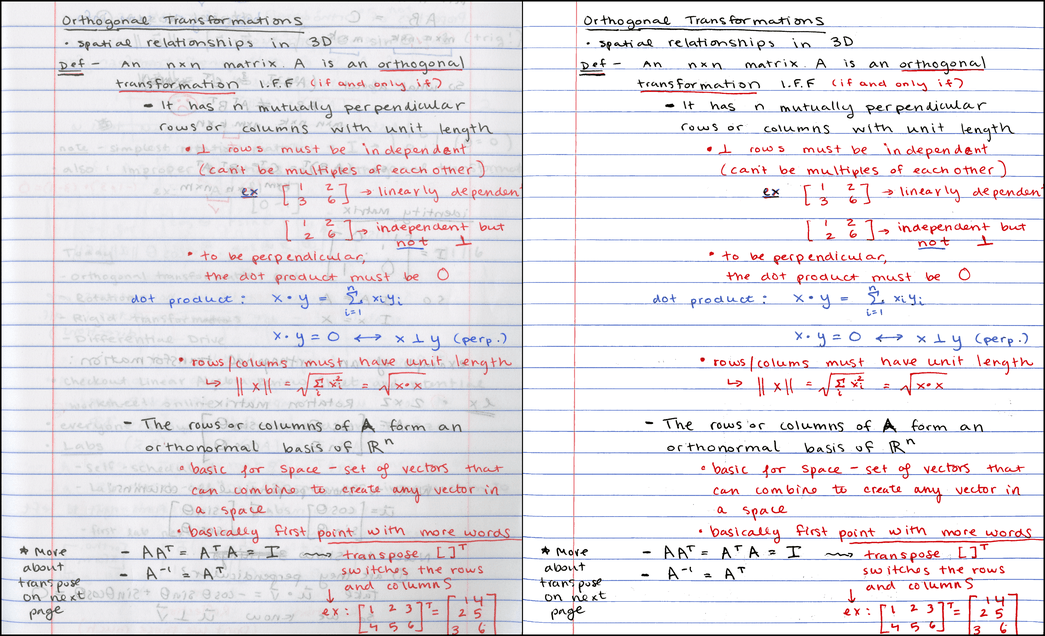 Orthogonal Transformations
• spatial relationships in 3D
Def - An n×n matrix A is an orthogonal
transformation I.F.F (if and only if)
- It has n mutually perpendicular
rows or columns with unit length
• ⊥ rows must be independent
(can't be multiples of each other)
ex [1 2; 3 6] → linearly dependent
[1 2; 2 6] → independent but
not ⊥
• to be perpendicular,
the dot product must be 0
dot product: x • y = Σ_{i=1}^{n} x_i y_i
x • y = 0 ↔ x ⊥ y (perp.)
• rows/colums must have unit length
↳ ||x|| = √(Σ_i x_i²) = √(x•x)
- The rows or columns of A form an
orthonormal basis of ℝⁿ
• basic for space - set of vectors that
can combine to create any vector in
a space
• basically first point with more words
* More about transpose on next page
- AAᵀ = AᵀA = I ⟿ transpose [ ]ᵀ
- A⁻¹ = Aᵀ
switches the rows
and columns
↓
ex: [1 2 3; 4 5 6]ᵀ = [1 4; 2 5; 3 6]
Orthogonal Transformations
• spatial relationships in 3D
Def - An n×n matrix A is an orthogonal
transformation I.F.F (if and only if)
- It has n mutually perpendicular
rows or columns with unit length
• ⊥ rows must be independent
(can't be multiples of each other)
ex [1 2; 3 6] → linearly dependent
[1 2; 2 6] → independent but
not ⊥
• to be perpendicular,
the dot product must be 0
dot product: x • y = Σ_{i=1}^{n} x_i y_i
x • y = 0 ↔ x ⊥ y (perp.)
• rows/colums must have unit length
↳ ||x|| = √(Σ_i x_i²) = √(x•x)
- The rows or columns of A form an
orthonormal basis of ℝⁿ
• basic for space - set of vectors that
can combine to create any vector in
a space
• basically first point with more words
* More about transpose on next page
- AAᵀ = AᵀA = I ⟿ transpose [ ]ᵀ
- A⁻¹ = Aᵀ
switches the rows
and columns
↓
ex: [1 2 3; 4 5 6]ᵀ = [1 4; 2 5; 3 6]